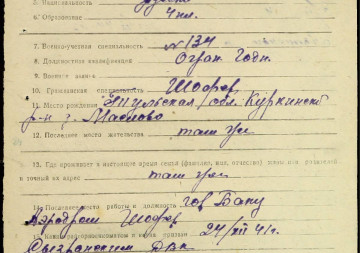 5. Национальность русский
6. Образование 4 кл.
7. Военно-учетная специальность №134
8. Должностная квалификация Огран. Годн.
9. Военное звание
10. Гражданская специальность Шофер
11. Место рождения Тульская обл. Куркинский
р-н д. Маслово
12. Последнее место жительства там же
13. Где проживает в настоящее время семья (фамилия, имя, отчество) жены или родителей
и точный их адрес там же
14. Последнее место работы и должность гор Баку
Аэродром Шофер
15. Каким райвоенкоматом и когда призван 24/XII 41 г.
Сызранским РВК